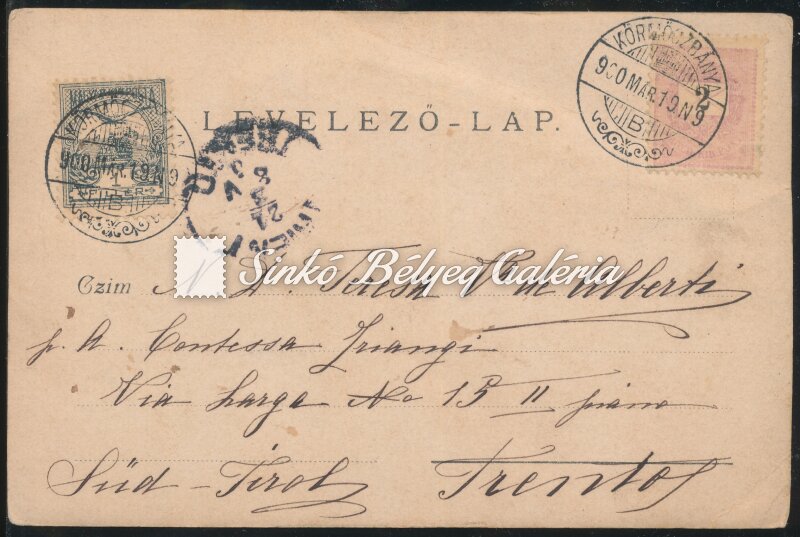 KÖRMÖCZBÁNYA
900 MÁR. 19. N9
B
2
900 MÁR. 19. N9
1
FILLÉR
B
LEVELEZŐ-LAP.
TRIENT
Sinkó Bélyeg Galéria
Czim Teresa de Alberti
p. A. Contessa Triangi
Via Larga No 15 II piano
Süd-Tirol Trento